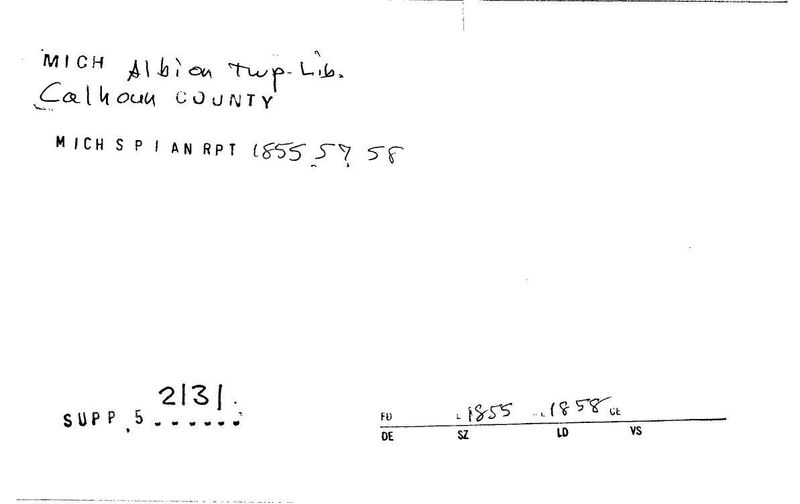 MICH Albion twp. Lib.
Calhoun COUNTY
MICH S P I AN RPT 1855 57 58
2131.
SUPP 5 . . . . . .
FD 1855 1858 CE
DE SZ LD VS